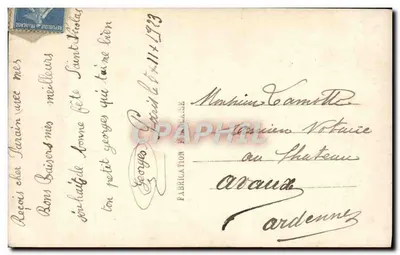 Reçois cher Parain avec mes
Bons Baisers mes meilleurs
souhaits de bonne fête Saint Nicolas
ton petit georges qui t'aime bien
Georges
FABRICATION
Monsieur Lamotte
ancien Notaire
au Chateau
avaux
ardennes
CPARAMA